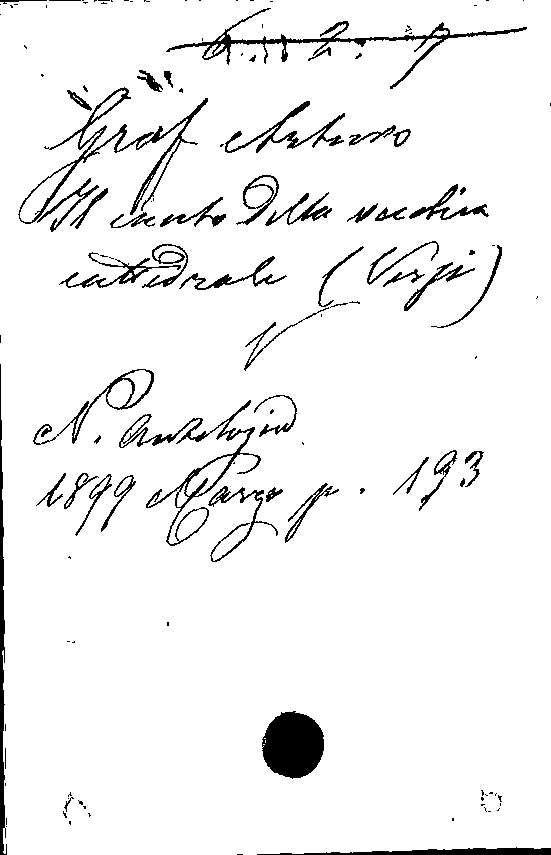 Graf Arturo
Il canto della vecchia
cattedrale (Versi)
N. Antologia
1899 Marzo p. 193